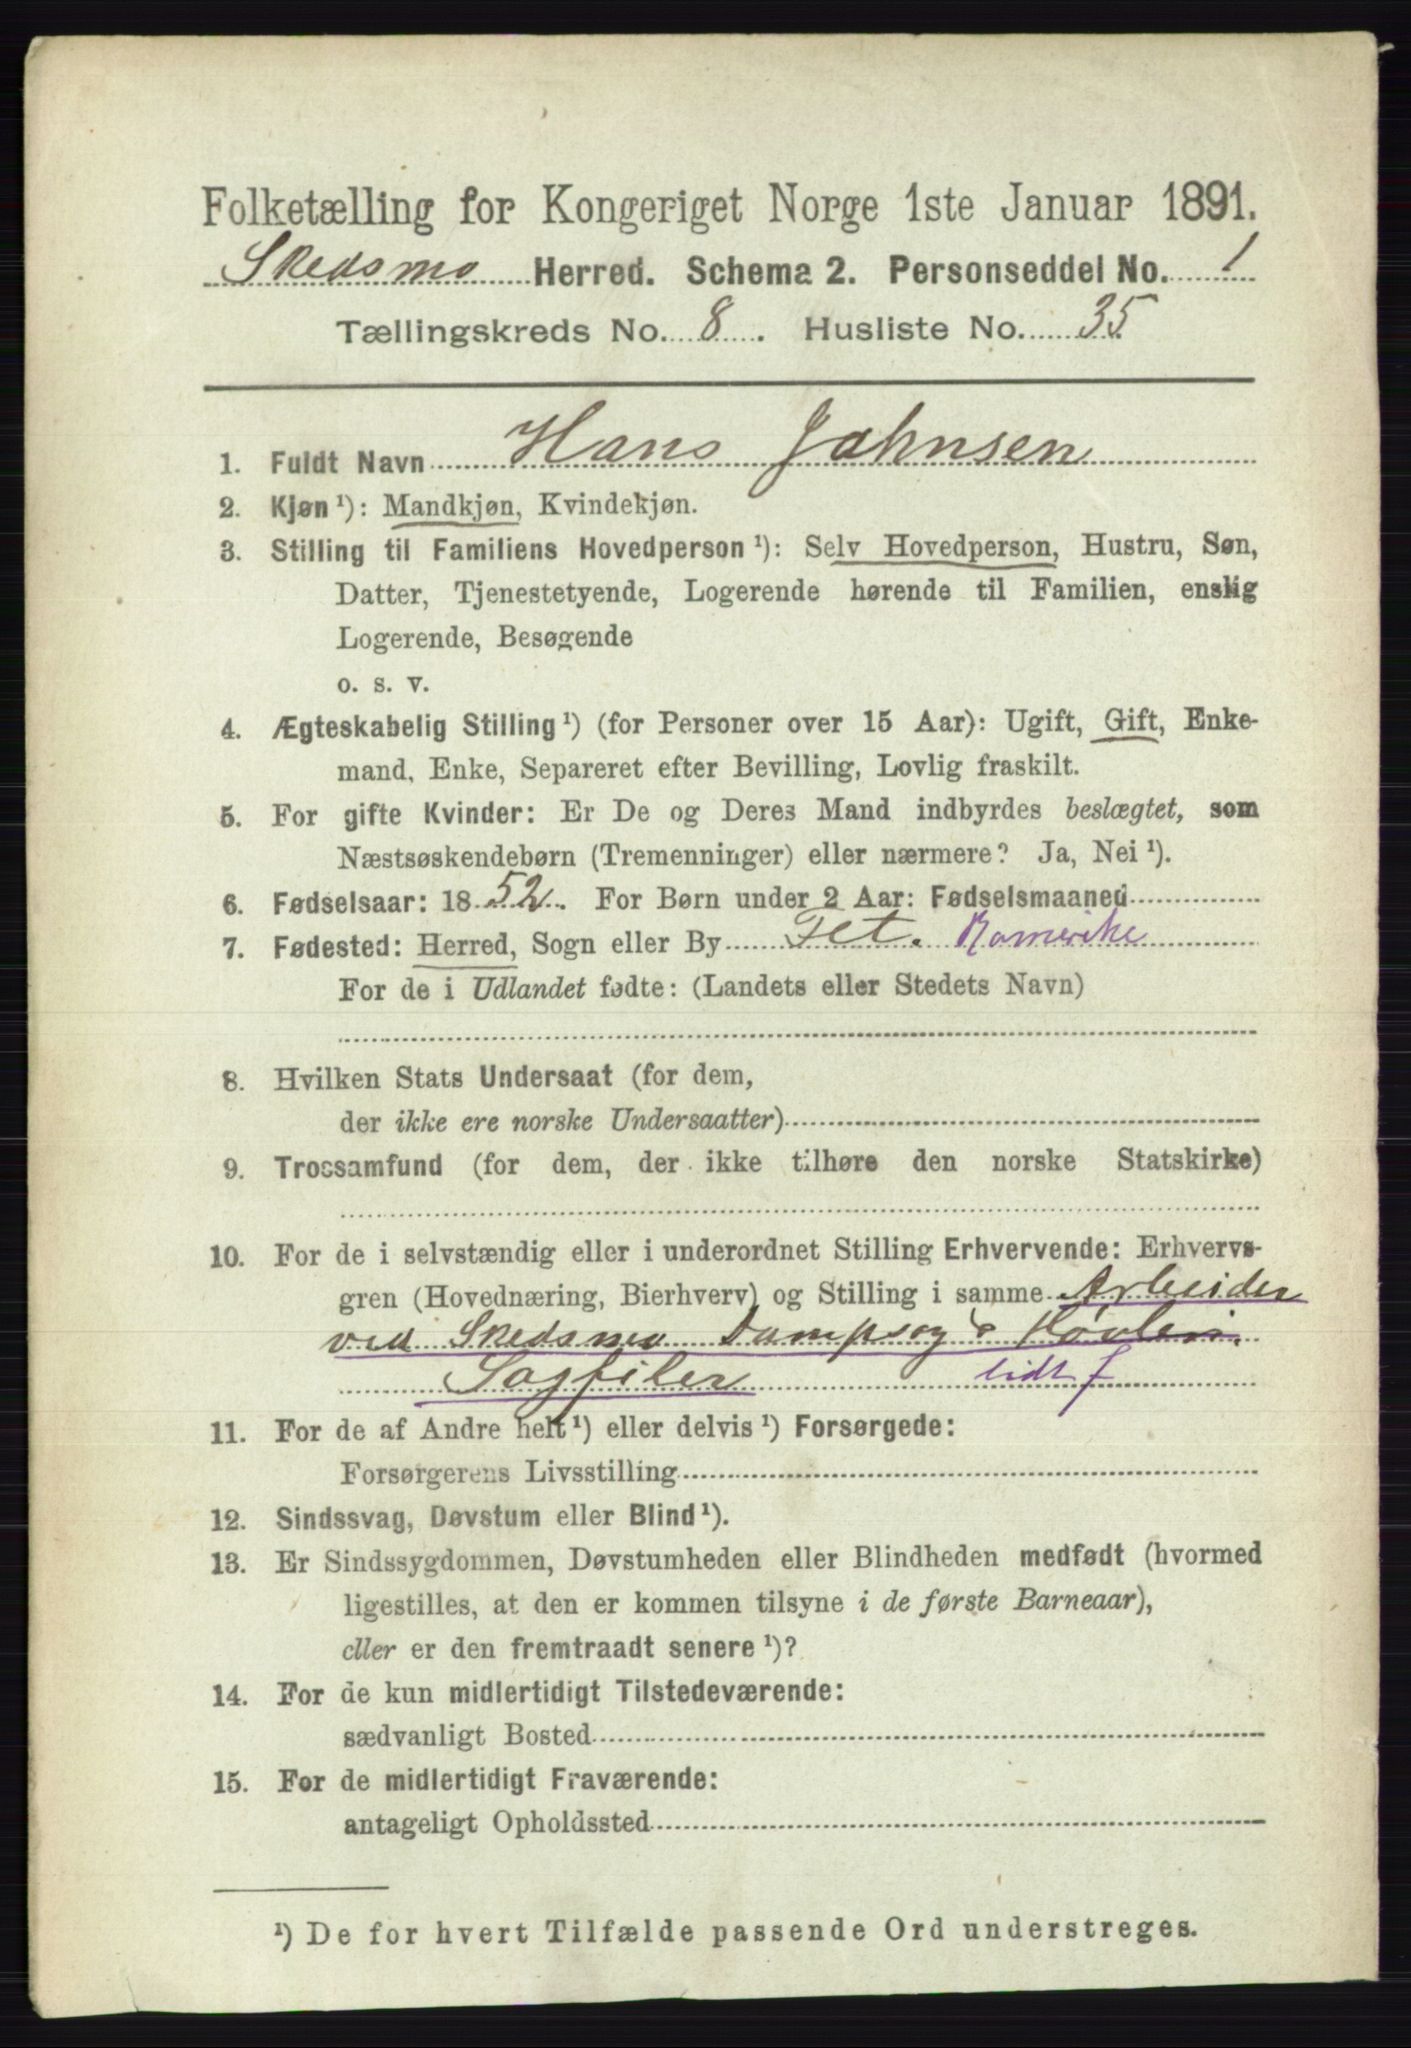 Folketælling for Kongeriget Norge 1ste Januar 1891.
Skedsmo Herred. Schema 2. Personseddel No. 1
Tællingskreds No. 8. Husliste No. 35
1. Fuldt Navn Hans Jahnsen
2. Kjøn ¹): Mandkjøn, Kvindekjøn.
3. Stilling til Familiens Hovedperson ¹): Selv Hovedperson, Hustru, Søn,
Datter, Tjenestetyende, Logerende hørende til Familien, enslig
Logerende, Besøgende
o. s. v.
4. Ægteskabelig Stilling ¹) (for Personer over 15 Aar): Ugift, Gift, Enke-
mand, Enke, Separeret efter Bevilling, Lovlig fraskilt.
5. For gifte Kvinder: Er De og Deres Mand indbyrdes beslægtet, som
Næstsøskendebørn (Tremenninger) eller nærmere? Ja, Nei ¹).
6. Fødselsaar: 1852. For Børn under 2 Aar: Fødselsmaaned
7. Fødested: Herred, Sogn eller By Fet. Romerike
For de i Udlandet fødte: (Landets eller Stedets Navn)
8. Hvilken Stats Undersaat (for dem,
der ikke ere norske Undersaatter)
9. Trossamfund (for dem, der ikke tilhøre den norske Statskirke)
10. For de i selvstændig eller i underordnet Stilling Erhvervende: Erhvervs-
gren (Hovednæring, Bierhverv) og Stilling i samme Arbeider
ved Skedsmo Dampsag & Høvleri.
Sagfiler lidt f
11. For de af Andre helt ¹) eller delvis ¹) Forsørgede:
Forsørgerens Livsstilling
12. Sindssvag, Døvstum eller Blind ¹).
13. Er Sindssygdommen, Døvstumheden eller Blindheden medfødt (hvormed
ligestilles, at den er kommen tilsyne i de første Barneaar),
eller er den fremtraadt senere ¹)?
14. For de kun midlertidigt Tilstedeværende:
sædvanligt Bosted
15. For de midlertidigt Fraværende:
antageligt Opholdssted
¹) De for hvert Tilfælde passende Ord understreges.